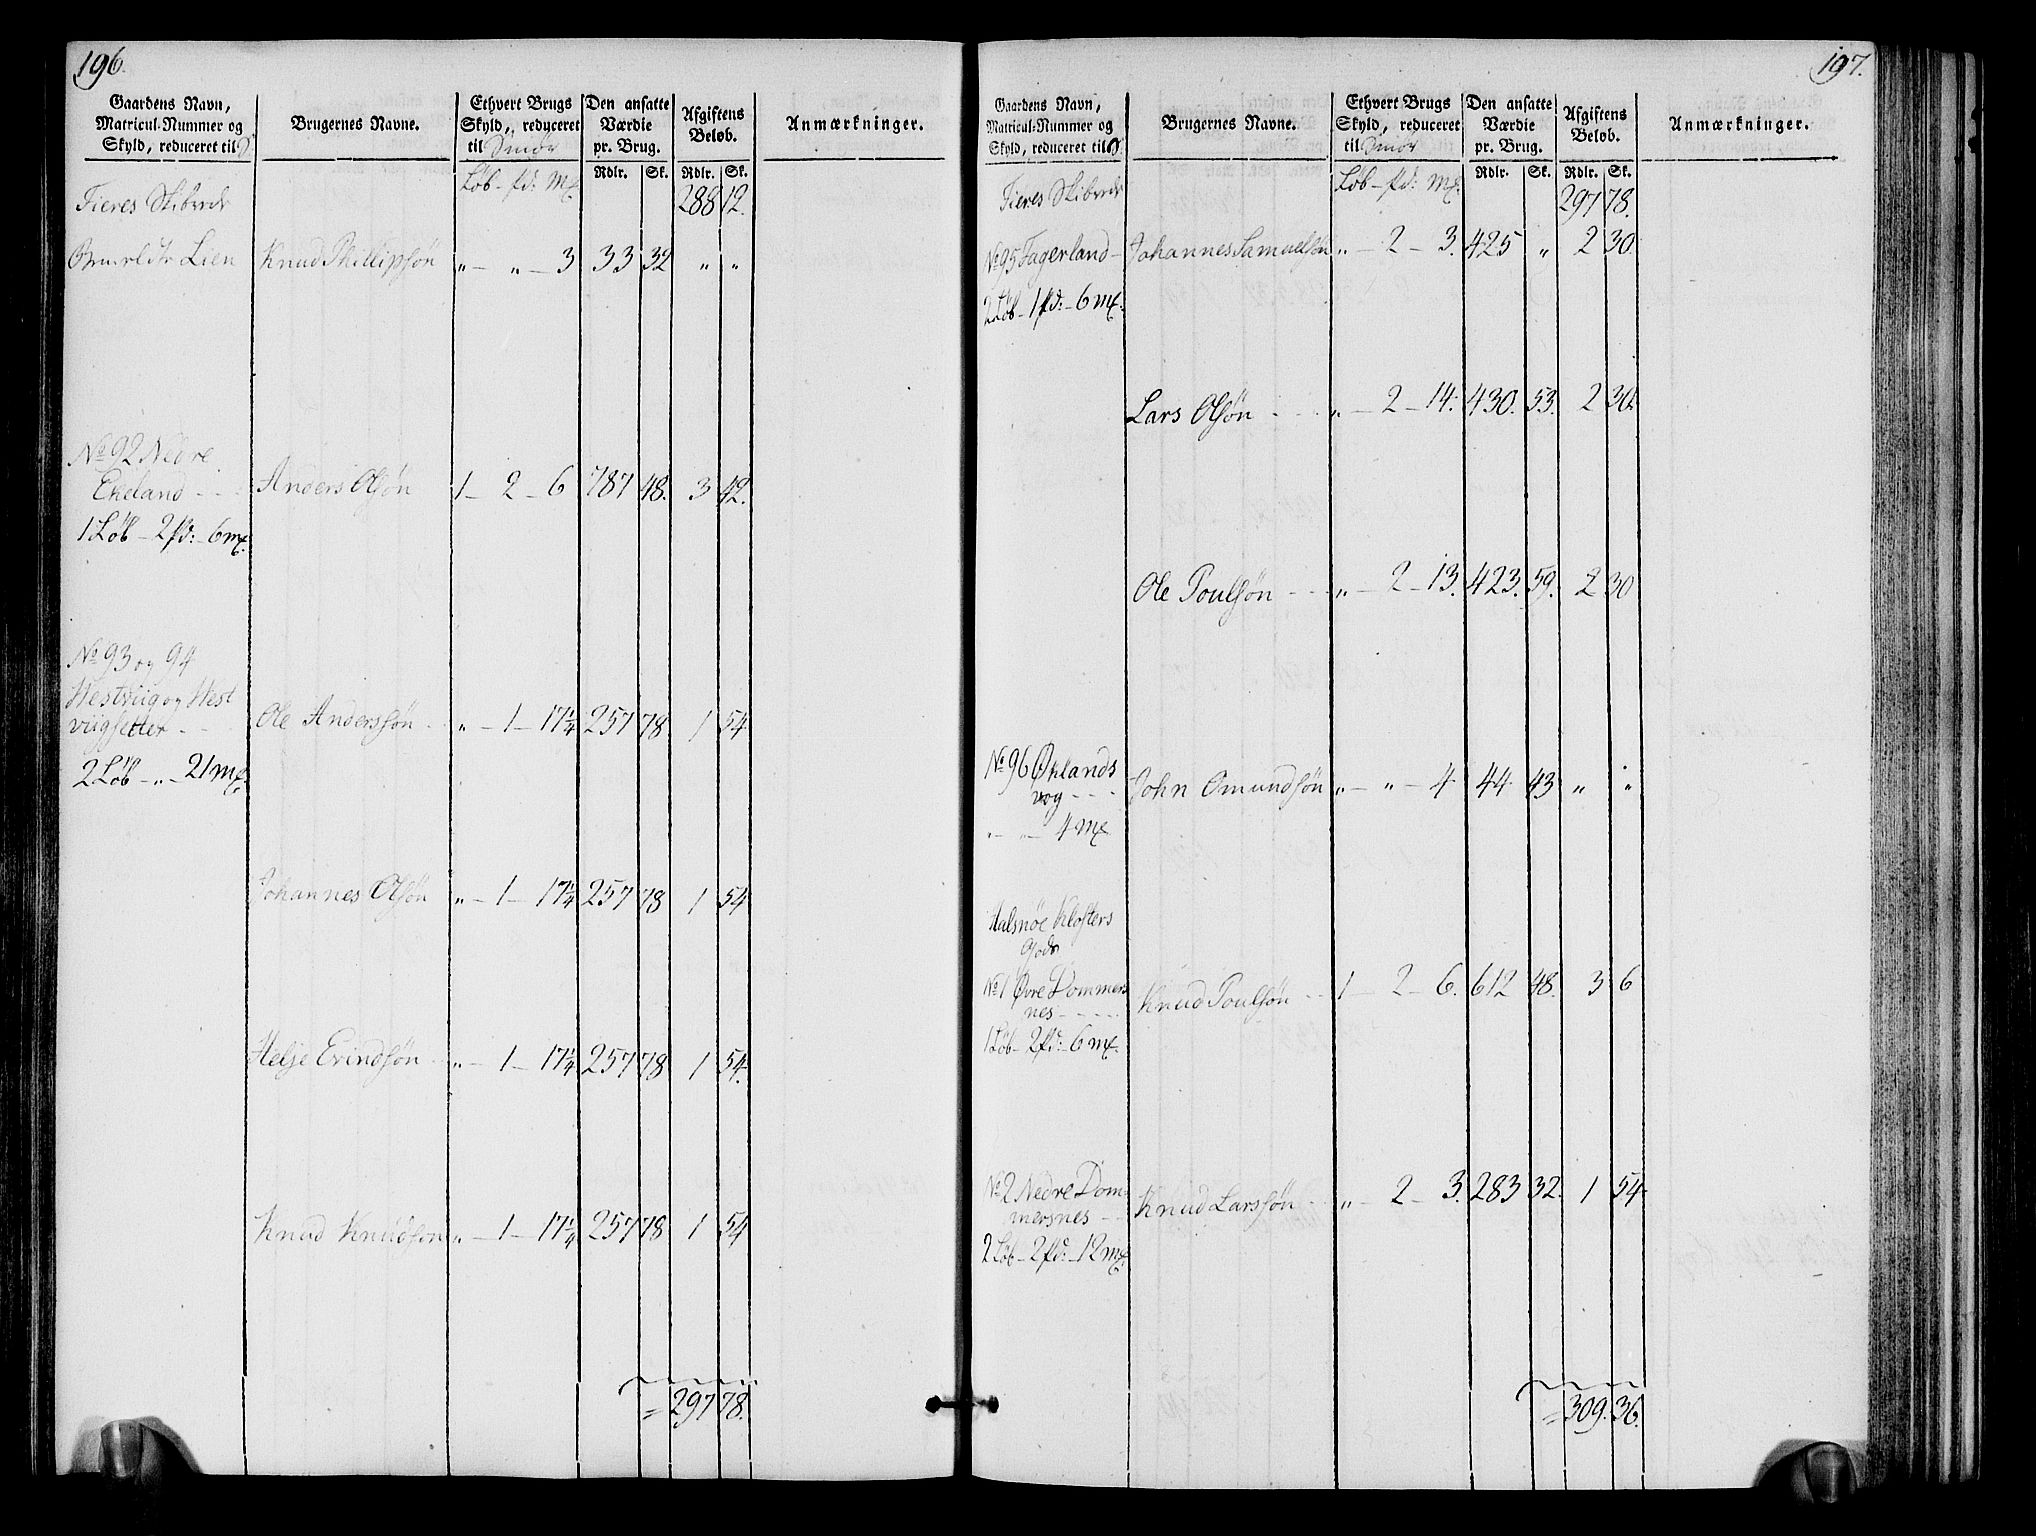 196.
Gaardens Navn, Matricul-Nummer og Skyld, reduceret til
Brugernes Navne.
Ethvert Brugs Skyld, reduceret til Smör
Den ansatte Værdie pr. Brug.
Afgiftens Beløb.
Anmærkninger.
Rdlr. Sk. Rdlr. Sk.
Løb - pd: Mk
Fieres Skibrede 288 12.
Lien Knud Phillipsøn " - " - 3 33 32 " "
No 92 Nedre
Ekeland - - Anders Olsøn 1 - 2 - 6 787 48. 3 42.
1 Løb - 2 pd: - 6 mk.
No 93 og 94
Westviig og West
viigsetter - - Ole Anderssøn " - 1 - 17¼ 257 78 1 54
2 Løb - " - 21 mk.
Johannes Olsøn " - 1 - 17¼ 257 78 1 54
Helje Erindsøn " - 1 - 17¼ 257 78 1 54.
Knud Knudsøn " - 1 - 17¼ 257 78 1 54
= 297 78.
197.
Gaardens Navn, Matricul-Nummer og Skyld, reduceret til
Brugernes Navne.
Ethvert Brugs Skyld, reduceret til Smör
Den ansatte Værdie pr. Brug.
Afgiftens Beløb.
Anmærkninger.
Rdlr. Sk. Rdlr. Sk.
Løb - pd: Mk.
Fieres Skibrede 297 78.
No 95 Fagerland - Johannes Samuelsøn " - 2 - 3. 425 " 2 30.
2 Løb - 1 pd: - 6 mk.
Lars Olsøn - - " - 2 - 14. 430. 53. 2 30.
Ole Poulsøn - - " - 2 - 13. 423. 59. 2 30
No 96 Øklands
vog - - - John Omundsøn " - " - 4 44 43 " "
" - " - 4 Mk
Halsnøe Klosters
Gods
No 1 Øvre Dommers
nes - - - - Knud Poulsøn - - 1 - 2 - 6. 612 48. 3 6
1 Løb - 2 pd: - 6 mk.
No 2 Nedre Dom-
mersnes - - Knud Larssøn - - " - 2 - 3. 283 32. 1 54.
2 Løb - 2 pd: - 12 mk.
= 309. 36.